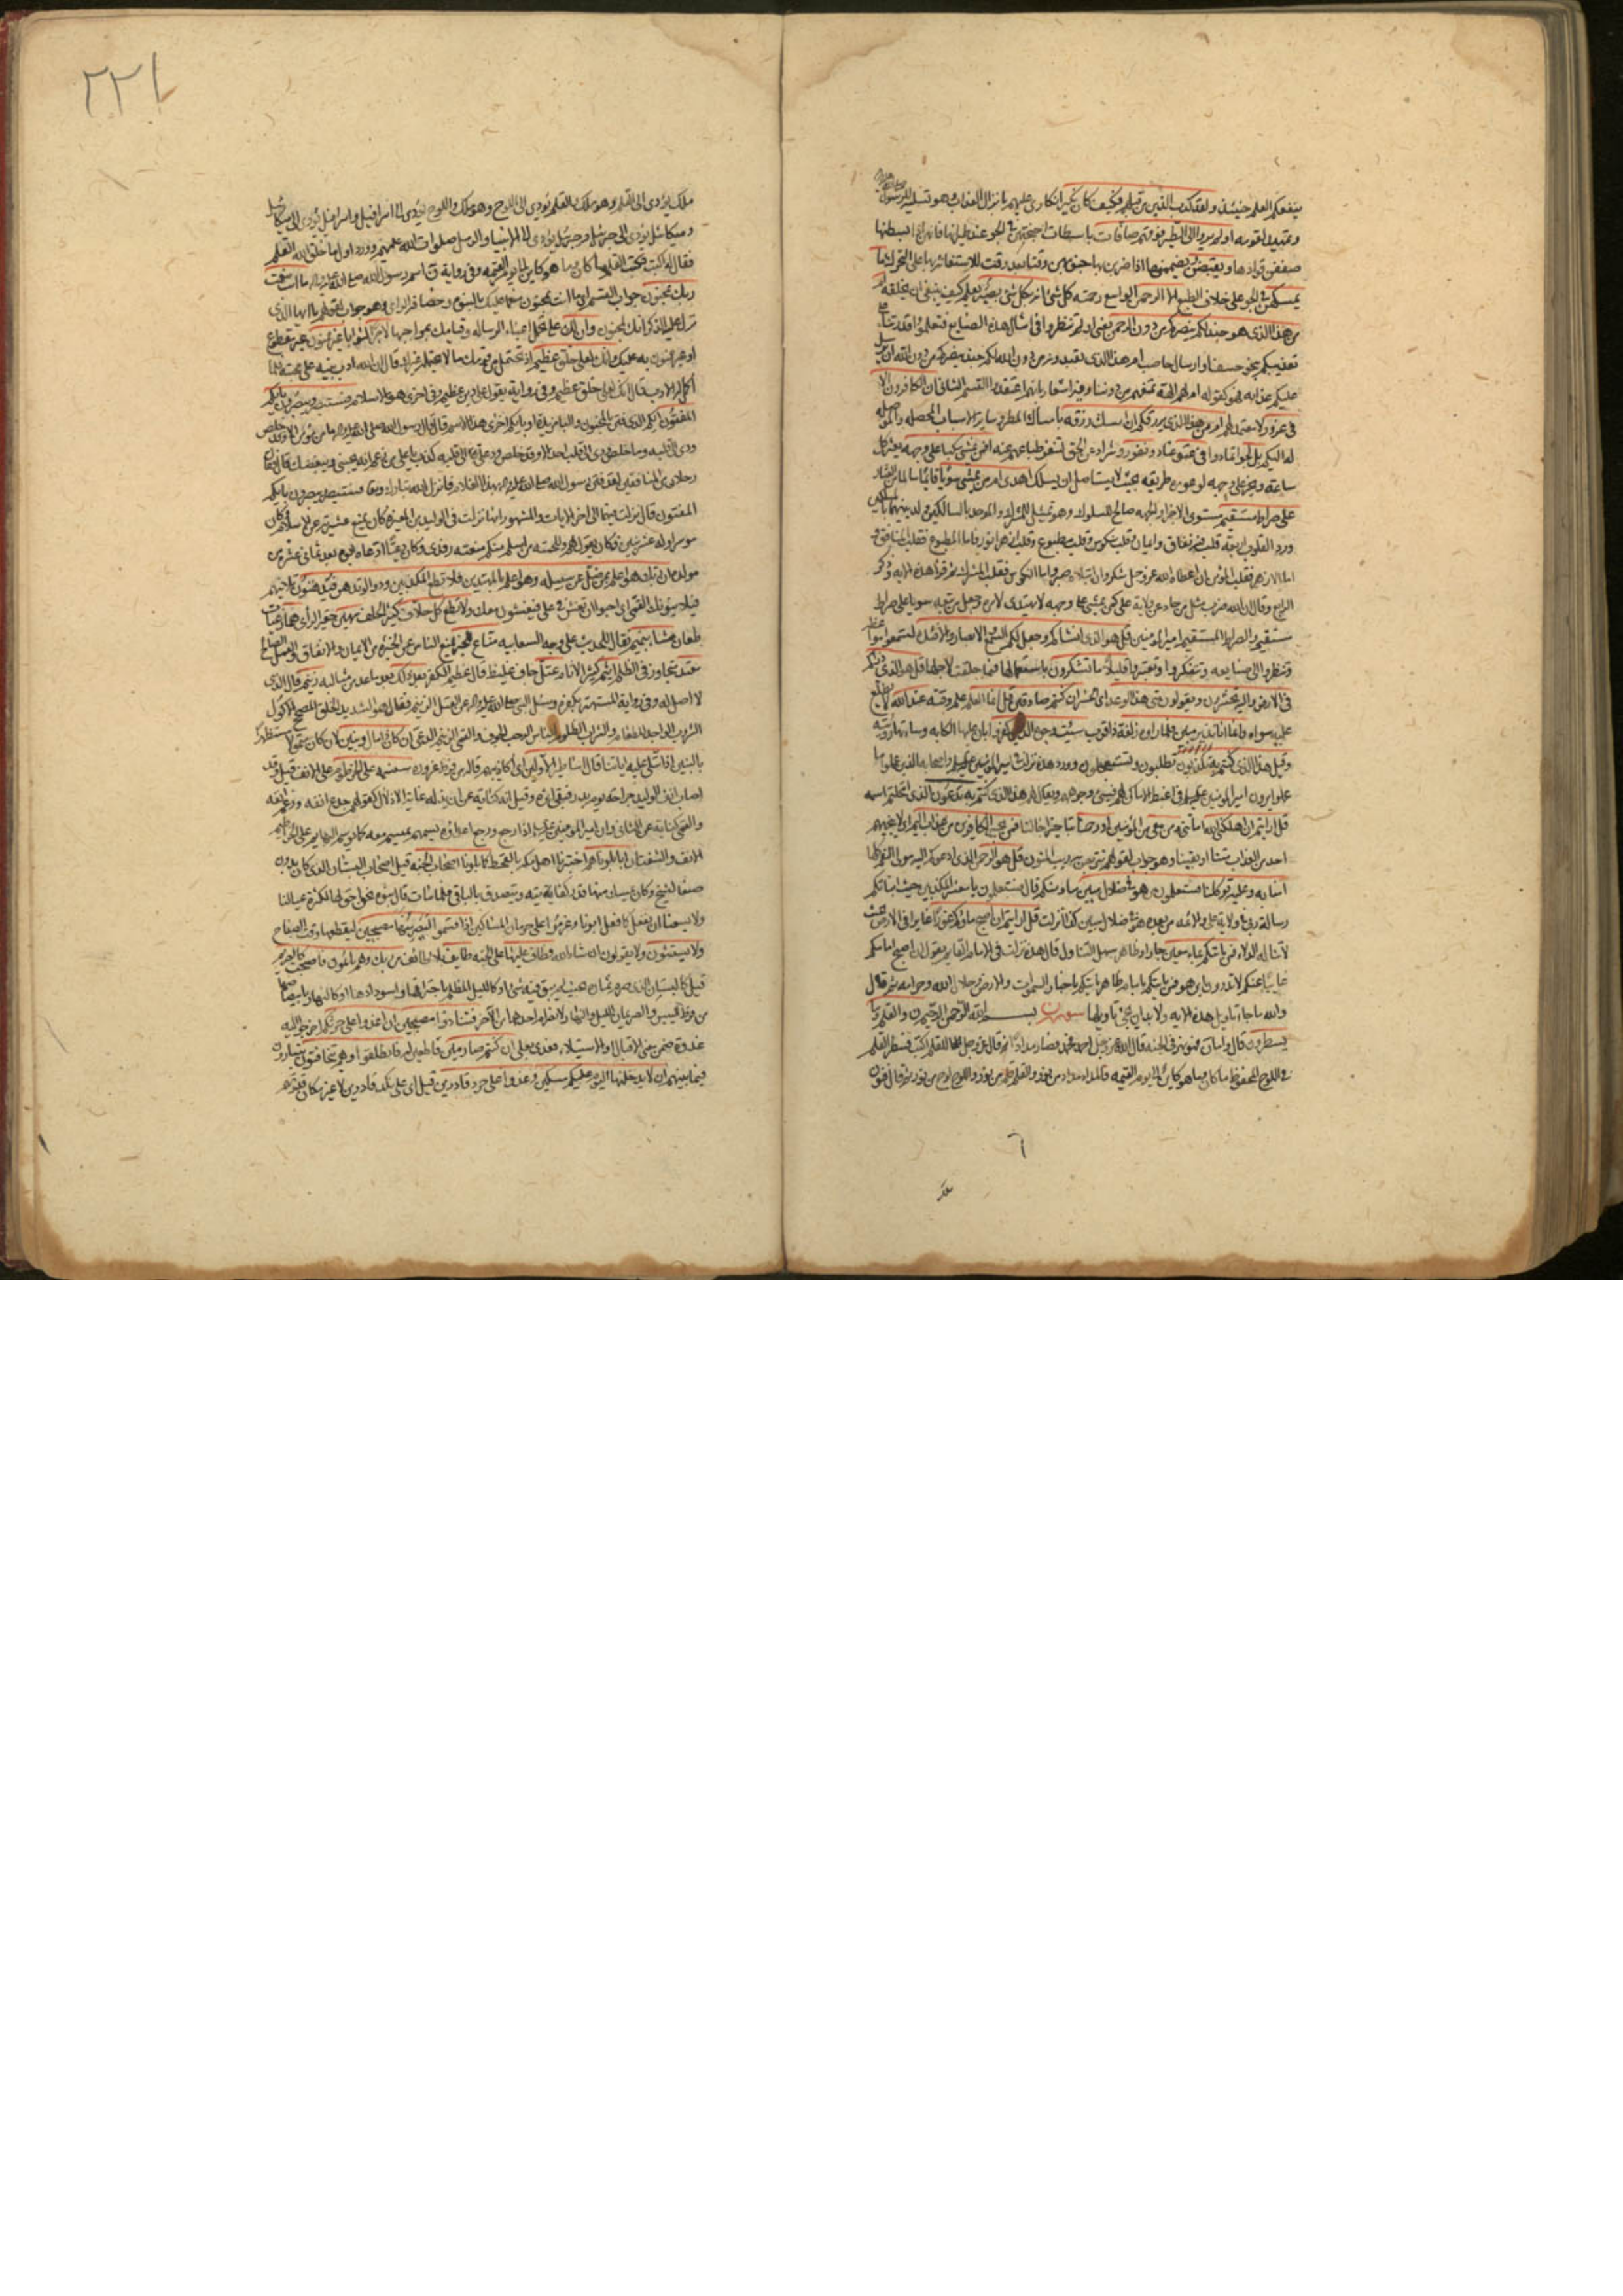 ينفعكم العلم حينئذ ولقد كذب الذين من قبلهم فكيف كان نكير انكاري عليهم بانزال العذاب وهو تسلية للرسول
وتهديد لقومه اولم يروا الى الطير فوقهم صافات باسطات اجنحتهن في الجو عند طيرانها فانهن اذا بسطنها
صففن قوادمها ويقبضن ويضممنها اذا ضربن بها جنوبهن وقتا بعد وقت للاستعانة بها على التحرك ما
يمسكهن في الجو على خلاف الطبع الا الرحمن الواسع رحمته كل شئ انه بكل شئ بصير يعلم كيف ينبغي ان يخلقه
من هذا الذي هو جند لكم ينصركم من دون الرحمن يعني اولم تنظروا في امثال هذه الصنايع فتعلموا قدرتنا على
تعذيبكم بنحو خسف وارسال حاصب ام هذا الذي تعبدونه من دون الله لكم جند ينصركم من دون الله ان يرسل
عليكم عذابه فهو كقوله ام لهم الهة تمنعهم من دوننا وفيه اشعار بانهم اعتقدوا القسم الثاني ان الكافرون الا
في غرور لا معتمد لهم امن هذا الذي يرزقكم ان امسك رزقه بامساك المطر وساير الاسباب المحصلة والموصلة
له اليكم بل لجوا تمادوا في عتو عناد ونفور وشراد عن الحق لتنفر طباعهم عنه افمن يمشي مكبا على وجهه يعثر كل
ساعة ويخر على وجهه لوعورة طريقه بحيث لا يستاهل ان يسلك اهدى امن يمشي سويا قائما سالما من العثار
على صراط مستقيم مستوي الاجزاء والجهة صالح للسلوك وهو تمثيل للمشرك والموحد بالسالكين ولدينيهما بالمسلكين
ورد القلوب اربعة قلب فيه نفاق وايمان وقلب منكوس وقلب مطبوع وقلب ازهر انور فاما المطبوع فقلب المنافق و
اما الازهر فقلب المؤمن ان اعطاه الله عز وجل شكر وان ابتلاه صبر واما المنكوس فقلب المشرك ثم قرأ هذه الاية وذكر
الرابع وقال ان الله ضرب مثل من حاد عن ولاية علي كمن يمشي على وجهه لا يهتدي لامره وجعل من تبعه سويا على صراط
مستقيم والصراط المستقيم امير المؤمنين قل هو الذي انشاكم وجعل لكم السمع والابصار والافئدة لتسمعوا مواعظه
وتنظروا الى صنايعه وتتفكروا وتعتبروا قليلا ما تشكرون باستعمالها فيما خلقت لاجلها قل هو الذي ذرأكم
في الارض واليه تحشرون ويقولون متى هذا الوعد اي الحشر ان كنتم صادقين قل انما العلم علم وقته عند الله لا يطلع
عليه سواه وانما انا نذير مبين فلما رأوه زلفة ذا قرب سيئت وجوه الذين كفروا بان علتها الكابة وساءتها رؤيته
وقيل هذا الذي كنتم به تدعون تطلبون وتستعجلون وورد هذه نزلت في امير المؤمنين عليه السلام واصحابه الذين عملوا ما
عملوا يرون امير المؤمنين عليه السلام في اغبط الاماكن لهم فيسيئ وجوههم ويقال لهم هذا الذي كنتم به تدعون الذي انتحلتم اسمه
قل ارايتم ان اهلكني الله اماتني ومن معي من المؤمنين او رحمنا بتاخير اجالنا فمن يجير الكافرين من عذاب اليم اي لا ينجيهم
احد من العذاب متنا او بقينا وهو جواب لقولهم نتربص به ريب المنون قل هو الرحمن الذي ادعوكم اليه مولى النعم كلها
امنا به وعليه توكلنا فستعلمون من هو في ضلال مبين منا ومنكم قال فستعلمون يا معشر المكذبين حيث انباتكم
رسالة ربي في ولاية علي والائمة من بعده من هو في ضلال مبين كذا انزلت قل ارايتم ان اصبح ماؤكم غورا غايرا في الارض بحيث
لا تناله الدلاء فمن ياتيكم بماء معين جار او ظاهر سهل التناول قال هذه نزلت في الامام القايم يقول ان اصبح امامكم
غايبا عنكم لا تدرون اين هو فمن ياتيكم بامام ظاهر ياتيكم باخبار السموات والارض وحلال الله وحرامه ثم قال
والله ما جاء تاويل هذه الاية ولا بد ان يجئ تاويلها سورة ن بسم الله الرحمن الرحيم ن والقلم وما
يسطرون قال واما ن فهو نهر في الجنة قال الله عز وجل اجمد فجمد فصار مدادا ثم قال عز وجل للقلم اكتب فسطر القلم
في اللوح المحفوظ ما كان وما هو كاين الى يوم القيمة فالمداد مداد من نور والقلم قلم من نور واللوح لوح من نور ثم قال فنون
٢٢١
ملك يؤدي الى القلم وهو ملك والقلم يؤدي الى اللوح وهو ملك واللوح يؤدي الى اسرافيل واسرافيل يؤدي الى ميكائيل
وميكائيل يؤدي الى جبرئيل وجبرئيل يؤدي الى الانبياء والرسل صلوات الله عليهم وورد اول ما خلق الله القلم
فقال له اكتب فكتب القلم ما كان وما هو كاين الى يوم القيمة وفي رواية ن اسم رسول الله صلى الله عليه واله ما انت بنعمت
ربك بمجنون جواب القسم اي ما انت بمجنون منعما عليك بالنبوة وحصافة الراي وهو جواب لقولهم يا ايها الذي
نزل عليه الذكر انك لمجنون وان لك على تحمل اعباء الرسالة وقيامك بمواجبها لاجرا لثوابا غير ممنون غير مقطوع
او غير ممنون به عليك وانك لعلى خلق عظيم اذ تحتمل من قومك ما لا يحتمله غيرك قال ان الله ادب نبيه على محبته فلما
اكمل له الادب قال انك لعلى خلق عظيم وفي رواية يقول على دين عظيم وفي اخرى هو الاسلام فستبصر ويبصرون بايكم
المفتون ايكم الذي فتن بالجنون والباء مزيدة او بايكم اخرى هذا الاسم قال قال رسول الله صلى الله عليه واله ما من مؤمن الا وقد خلص
ودي الى قلبه وما خلص ودي الى قلب احد الا وقد خلص ود علي الى قلبه كذب يا علي من زعم انه يحبني ويبغضك قال فقال
رجلان من المنافقين لقد فتن رسول الله صلى الله عليه واله بهذا الغلام فانزل الله تبارك وتعالى فستبصر ويبصرون بايكم
المفتون قال نزلت فيهما الى اخر الايات والمشهور انها نزلت في الوليد بن المغيرة كان يمنع عشيرته عن الاسلام وكان
موسرا وله عشر بنين فكان يقول لهم وللحمته من اسلم منكم منعته رفدي وكان دعيا ادعاه ابوه بعد ثماني عشرة من
مولده ان ربك هو اعلم بمن ضل عن سبيله وهو اعلم بالمهتدين فلا تطع المكذبين ودوا لو تدهن فيدهنون تلاينهم
فيلاينونك القمي اي احبوا ان تغش في علي فيغشون معك ولا تطع كل حلاف كثير الحلف مهين حقير الراي هماز عياب
طعان مشاء بنميم نقال للحديث على وجه السعاية مناع للخير يمنع الناس عن الخير من الايمان والانفاق والعمل الصالح
معتد متجاوز في الظلم اثيم كثير الاثام عتل جاف غليظ قال عظيم الكفر بعد ذلك بعد ما عد من مثالبه زنيم قال الذي
لا اصل له وفي رواية المستهتر بكفره وسئل النبي صلى الله عليه واله عن العتل الزنيم فقال هو الشديد الخلق المصحح الاكول
الشروب الواجد للطعام والشراب الظلوم للناس الرحب الجوف والقمي الزنيم الدعي ان كان ذا مال وبنين لان كان متمولا مستظهرا
بالبنين اذا تتلى عليه اياتنا قال اساطير الاولين اي اكاذيبهم قاله من فرط غروره سنسمه على الخرطوم على الانف قيل وقد
اصاب انف الوليد جراحة يوم بدر فبقي اثره وقيل انه كناية عن ان يذله غاية الاذلال كقولهم جدع انفه ورغم انفه
والقمي كناية عن الثاني وان امير المؤمنين عليه السلام اذا رجع ورجع اعداؤه يسمهم بميسم معه كما توسم البهايم على الخراطيم
الانف والشفتان انا بلوناهم اختبرنا اهل مكة بالقحط كما بلونا اصحاب الجنة قيل اصحاب البستان الذي كان بدون
صنعا لشيخ وكان يمسك منها قدر كفايته ويتصدق بالباقي فلما مات قال بنوه نحن احق بها لكثرة عيالنا
ولا يسعنا ان نفعل كما فعل ابونا وعزموا على حرمان المساكين اذ اقسموا ليصرمنها مصبحين ليقطعنها وقت الصباح
ولا يستثنون ولا يقولون ان شاء الله فطاف عليها على الجنة طايف بلاء طائف من ربك وهم نائمون فاصبحت كالصريم
قيل كالبستان الذي صرم ثماره بحيث لم يبق فيه شئ او كالليل المظلم باحتراقها واسودادها او كالنهار بابيضاضها
من فرط اليبس والصريمان الليل والنهار لانصرام احدهما من الاخر فتنادوا مصبحين ان اغدوا على حرثكم اخرجوا اليه
غدوة ضمن معنى الاقبال او الاستيلاء فعدي بعلى ان كنتم صارمين قاطعين له فانطلقوا وهم يتخافتون يتسارون
فيما بينهم ان لا يدخلنها اليوم عليكم مسكين وغدوا على حرد قادرين قيل اي على نكد قادرين لا غير مكان قدرتهم